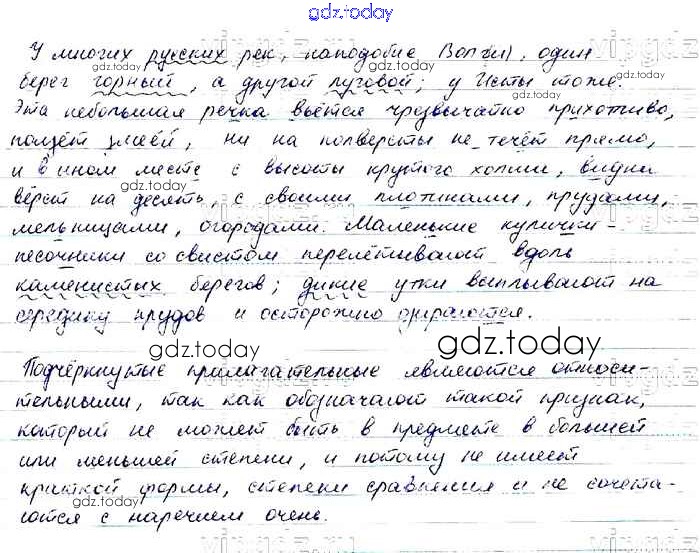 gdz.today
У многих русских рек, наподобие Волги, один
берег горный, а другой луговой; у Исты тоже.
gdz.today
gdz.today
Эта небольшая речка вьётся чрезвычайно прихотливо,
ползёт змеёй, ни на полверсты не течёт прямо,
и в ином месте с высоты крутого холма, видна
gdz.today
вёрст на десять, с своими плотинами, прудами,
мельницами, огородами. Маленькие кулички-
песочники со свистом перелётывают вдоль
gdz.today
каменистых берегов; дикие утки выплывают на
середину прудов и осторожно озираются.
gdz.today
gdz.today
Подчёркнутые прилагательные являются относи-
тельными, так как обозначают такой признак,
который не может быть в предмете в большей
или меньшей степени, и потому не имеет
краткой формы, степени сравнения и не сочета-
ются с наречием очень.